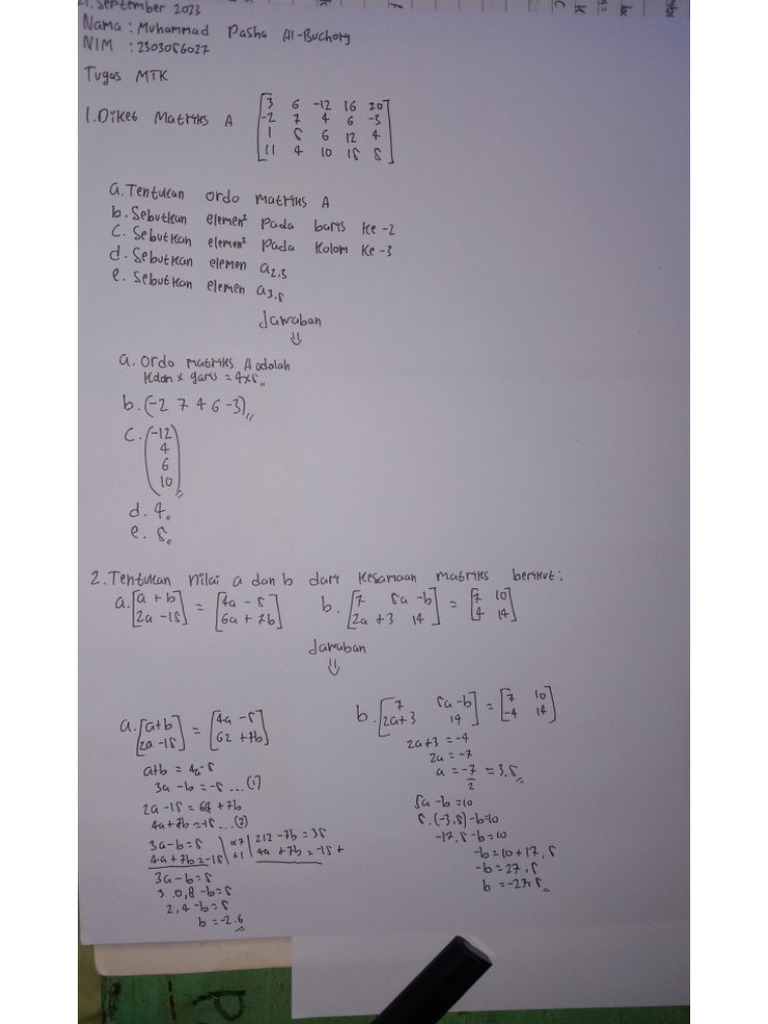 21. September 2023
Nama : Muhammad Pasha Al-Buchory
NIM : 2303056027
Tugas MTK
1. Diket Matriks A [3 6 -12 16 20]
[-2 7 4 6 -3]
[1 5 6 12 4]
[11 4 10 15 5]
a. Tentukan ordo matriks A
b. Sebutkan elemen² pada baris ke-2
c. Sebutkan elemen² pada kolom ke-3
d. Sebutkan elemen a2,3
e. Sebutkan elemen a3,5
Jawaban
⇓
a. Ordo matriks A adalah
× garis = 4×5
b. (-2 7 4 6 -3)
c. (-12
4
6
10)
d. 4
e. 5
2. Tentukan nilai a dan b dari kesamaan matriks berikut:
a. [a + b] = [4a - 5] b. [7 5a - b] = [7 10]
[2a - 15] [6a + 7b] [2a + 3 14] [4 14]
Jawaban
⇓
a. [a+b] = [4a - 5]
[2a - 15] [62 + 7b]
a+b = 4a-5
3a - b = -5 ...(1)
2a - 15 = 6a + 7b
4a + 7b = -15 ...(2)
3a - b = 5 | ×7 | 212 - 7b = 35
4a + 7b = -15 | ×1 | 4a + 7b = -15 +
3a - b = 5
3 . 0,8 - b = 5
2,4 - b = 5
b = -2.6
b. [7 5a - b] = [7 10]
[2a+3 14] [-4 14]
2a+3 = -4
2a = -7
a = -7/2 = 3,5
5a - b = 10
5.(-3,5) - b = 10
-17,5 - b = 10
-b = 10 + 17,5
-b = 27,5